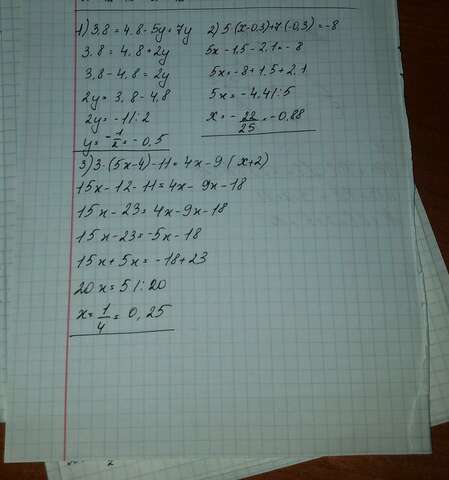 1) 3,8 = 4,8 - 5y + 7y
3,8 = 4,8 + 2y
3,8 - 4,8 = 2y
2y = 3,8 - 4,8
2y = -1 | : 2
y = -1/2 = -0,5
2) 5 (x-0,3)+7 (-0,3) = -8
5x - 1,5 - 2,1 = -8
5x = -8 + 1,5 + 2,1
5x = -4,4 | : 5
x = - 22/25 = -0,88
3) 3 · (5x-4) - 11 = 4x - 9 (x+2)
15x - 12 - 11 = 4x - 9x - 18
15x - 23 = 4x - 9x - 18
15x - 23 = -5x - 18
15x + 5x = -18 + 23
20x = 5 | : 20
x = 1/4 = 0,25